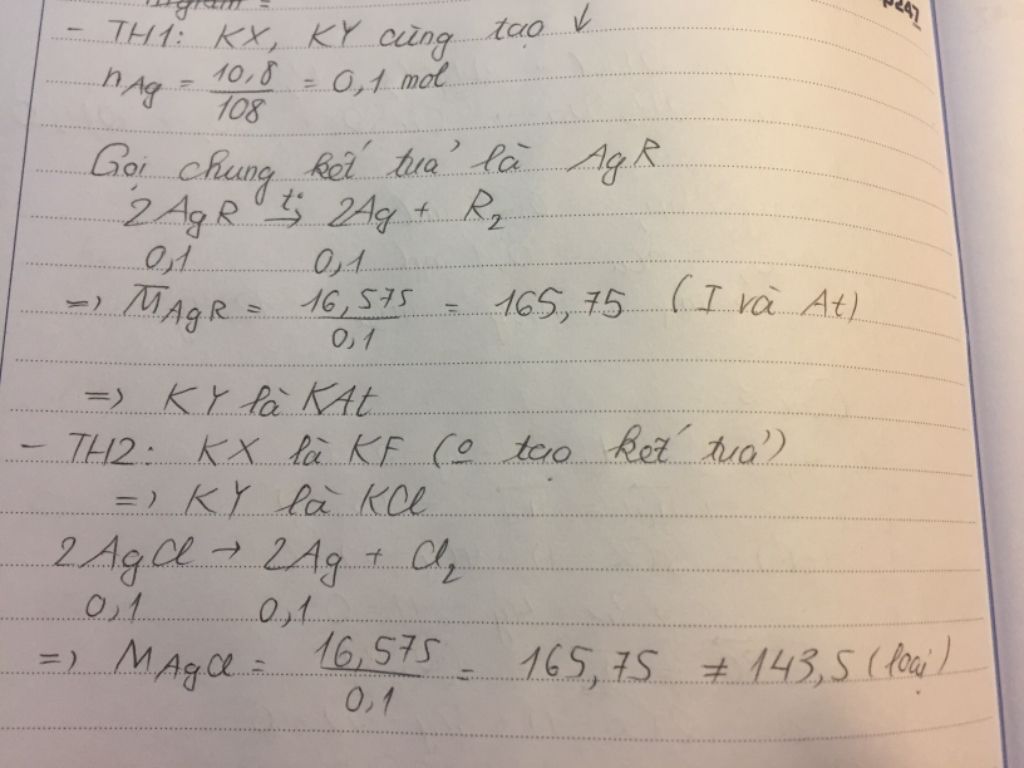 - TH1: KX, KY cùng tạo ↓
n Ag = 10,8 / 108 = 0,1 mol
Gọi chung kết tủa là AgR
2AgR t°→ 2Ag + R2
0,1 0,1
=> M̅ AgR = 16,575 / 0,1 = 165,75 (I và At)
=> KY là KAt
- TH2: KX là KF (o tạo kết tủa)
=> KY là KCl
2AgCl → 2Ag + Cl2
0,1 0,1
=> M AgCl = 16,575 / 0,1 = 165,75 ≠ 143,5 (loại)